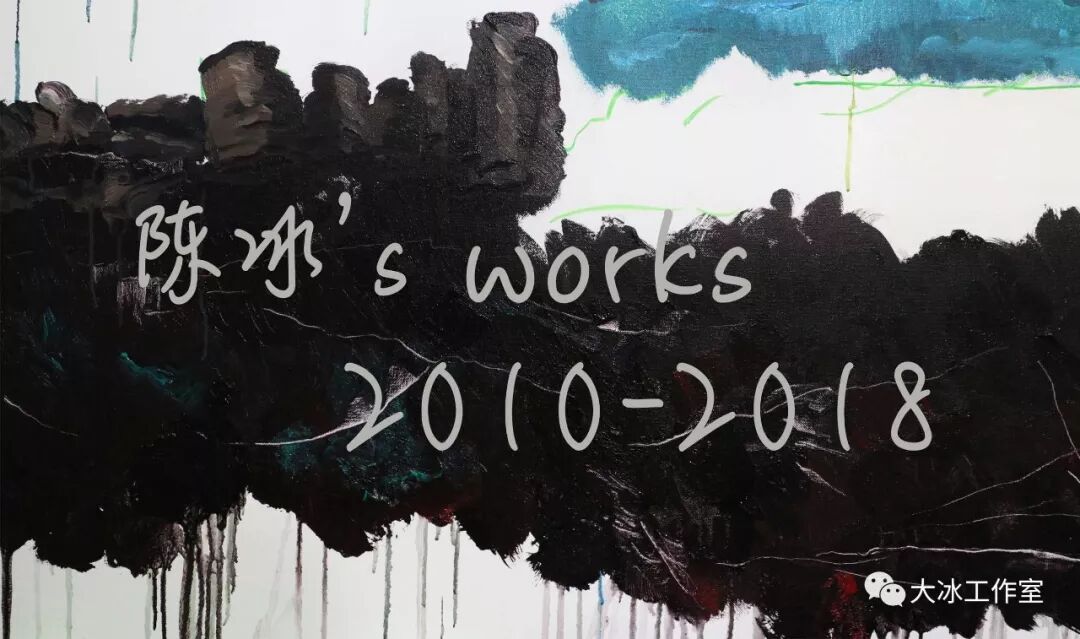 陈冰's works
2010-2018
大冰工作室